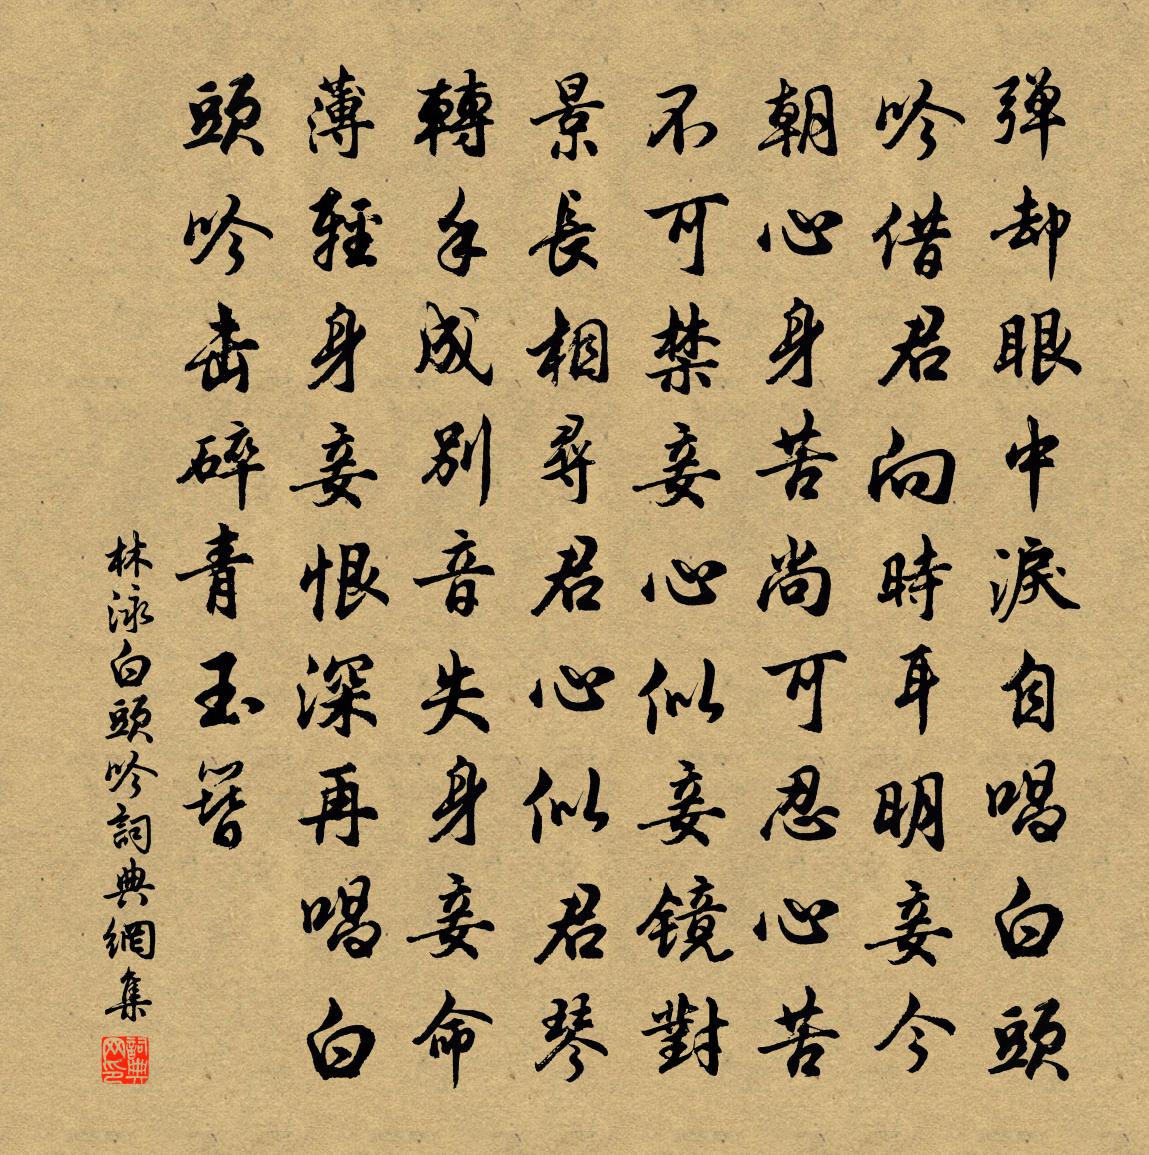 弹却眼中淚自唱白頭
吟借君向時耳明妾今
朝心身苦尚可忍心苦
不可禁妾心似妾镜對
景長相尋君心似君琴
轉手成别音失身妾命
薄輕身妾恨深再唱白
頭吟击碎青玉簪
林泳白頭吟詞典網集
詞典网印